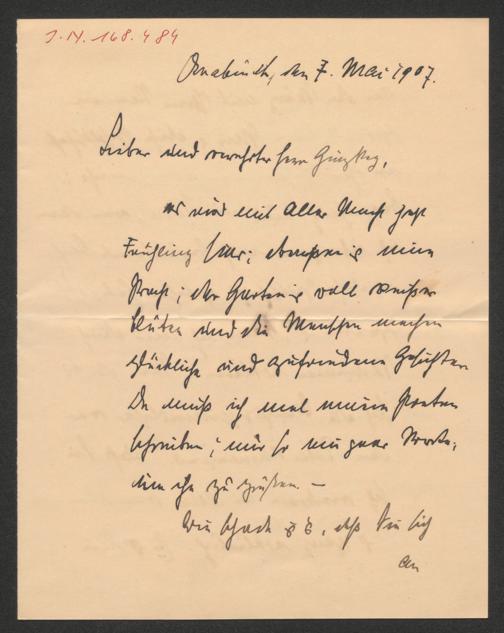 J.N. 168.484
Osnabrück, den 7. Mai 1907.
Lieber und verehrter Herr Ginzkey,
es wird mit aller Macht jetzt
Frühling hier; ebenso in mein
; der Garten is voll weißer
Blüten und die Menschen machen
glückliche und zufriedene Gesichter.
Da muß ich mal meinen Poeten
schreiben; nur so ein paar Worte,
um ihn zu grüßen. —
Wie schade is es, daß Sie sich
an